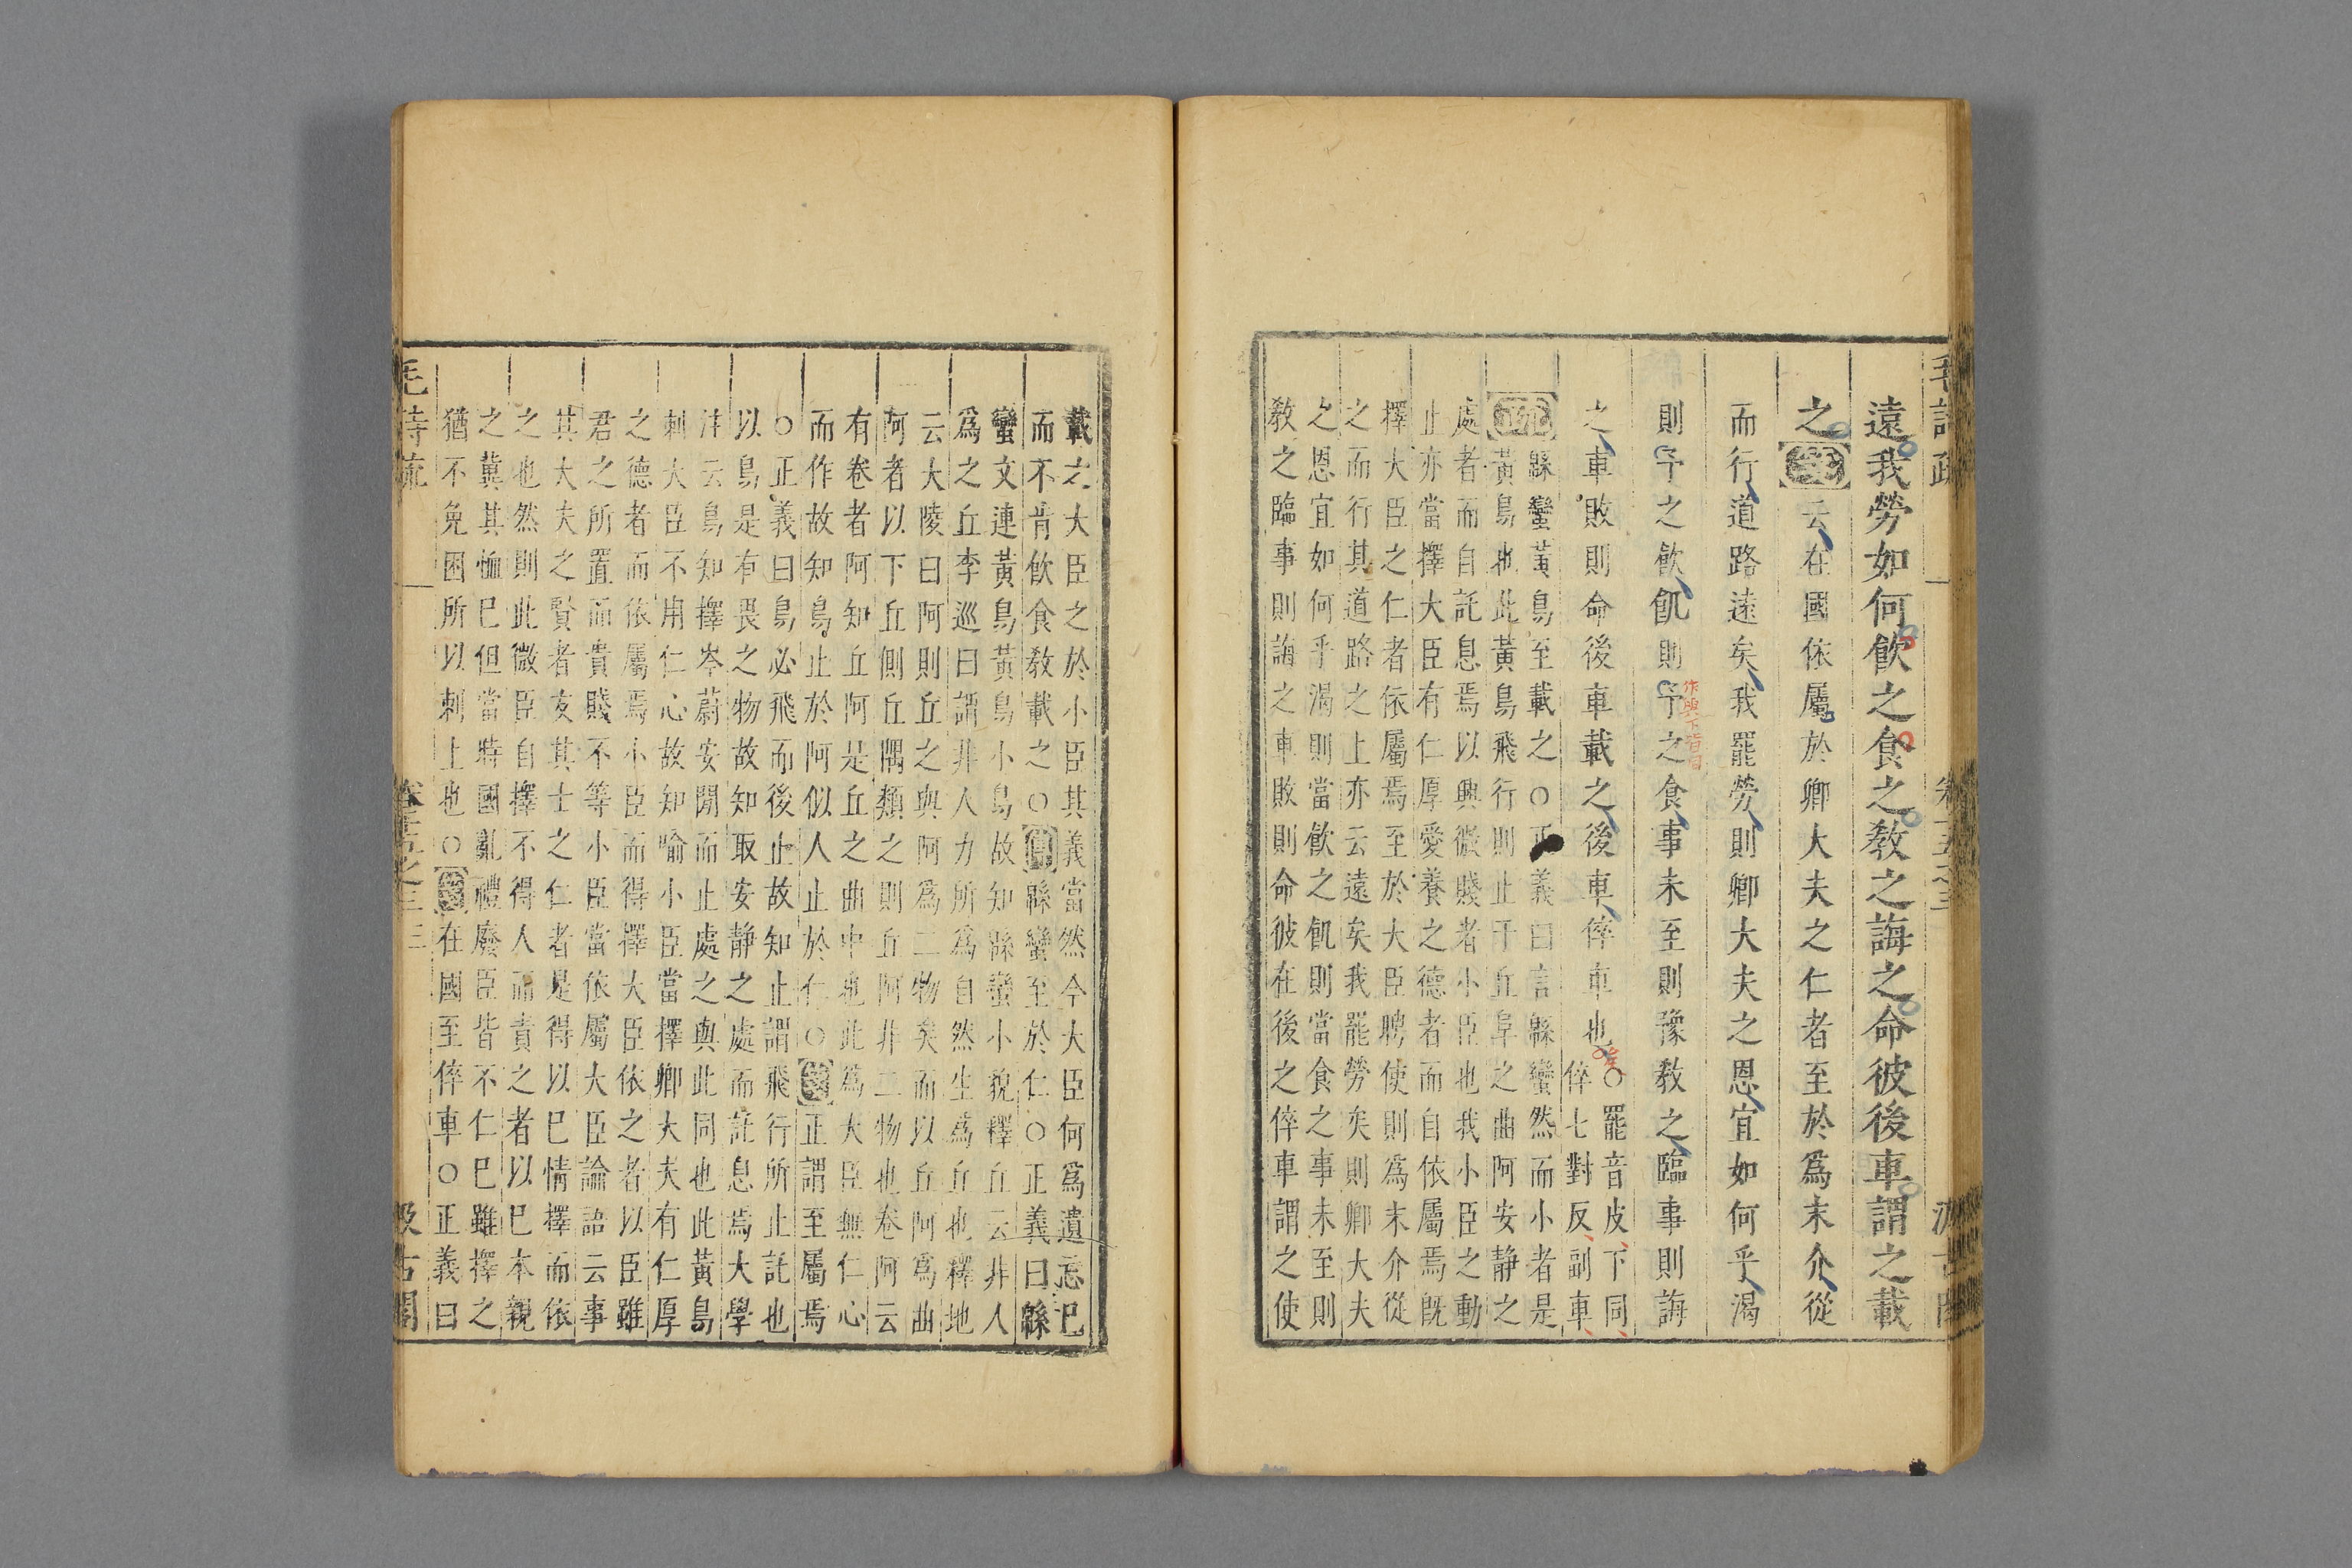 毛詩疏 卷十五之三 汲古閣
遠我勞如何飲之食之教之誨之命彼後車謂之載
之箋云在國依屬於卿大夫之仁者至於爲末介從
而行道路遠矣我罷勞則卿大夫之恩宜如何乎渴
則予之飲飢則予之食事未至則豫教之臨事則誨
作與下皆同
之車敗則命後車載之後車倅車也○罷音皮下同
倅七對反副車
疏緜蠻黃鳥至載之○正義曰言緜蠻然而小者是
黃鳥也此黃鳥飛行則止于丘阜之曲阿安靜之
處者而自託息焉以興微賤者小臣也我小臣之動
止亦當擇大臣有仁厚愛養之德者而自依屬焉既
擇大臣之仁者依屬焉至於大臣聘使則爲末介從
之而行其道路之上亦云遠矣我罷勞矣則卿大夫
之恩宜如何乎渴則當飲之飢則當食之事未至則
教之臨事則誨之車敗則命彼在後之倅車謂之使
載之大臣之於小臣其義當然今大臣何爲遺忘已
而不肯飲食教載之○傳緜蠻至於仁○正義曰緜
蠻文連黃鳥黃鳥小鳥故知緜蠻小貌釋丘云非人
爲之丘李巡曰謂非人力所爲自然生爲丘也釋地
云大陵曰阿則丘之與阿爲二物矣而以丘阿爲曲
阿者以下丘側丘隅類之則丘阿非二物也卷阿云
有卷者阿知丘阿是丘之曲中也此爲大臣無仁心
而作故知鳥止於阿似人止於仁○箋止謂至屬焉
○正義曰鳥必飛而後止故知止謂飛行所止託也
以鳥是有畏之物故知取安靜之處而託息焉大學
注云鳥知擇岑蔚安閒而止處之與此同也此黃鳥
刺大臣不用仁心故知喻小臣當擇卿大夫有仁厚
之德者而依屬焉小臣而得擇大臣依之者以臣雖
君之所置而貴賤不等小臣當依屬大臣論語云事
其大夫之賢者友其士之仁者是得以巳情擇而依
之也然則此微臣自擇不得人而責之者以巳本親
之冀其恤巳但當特國亂禮廢臣皆不仁巳雖擇之
猶不免困所以刺上也○箋在國至倅車○正義曰
毛詩疏 卷十五之三 三 汲古閣